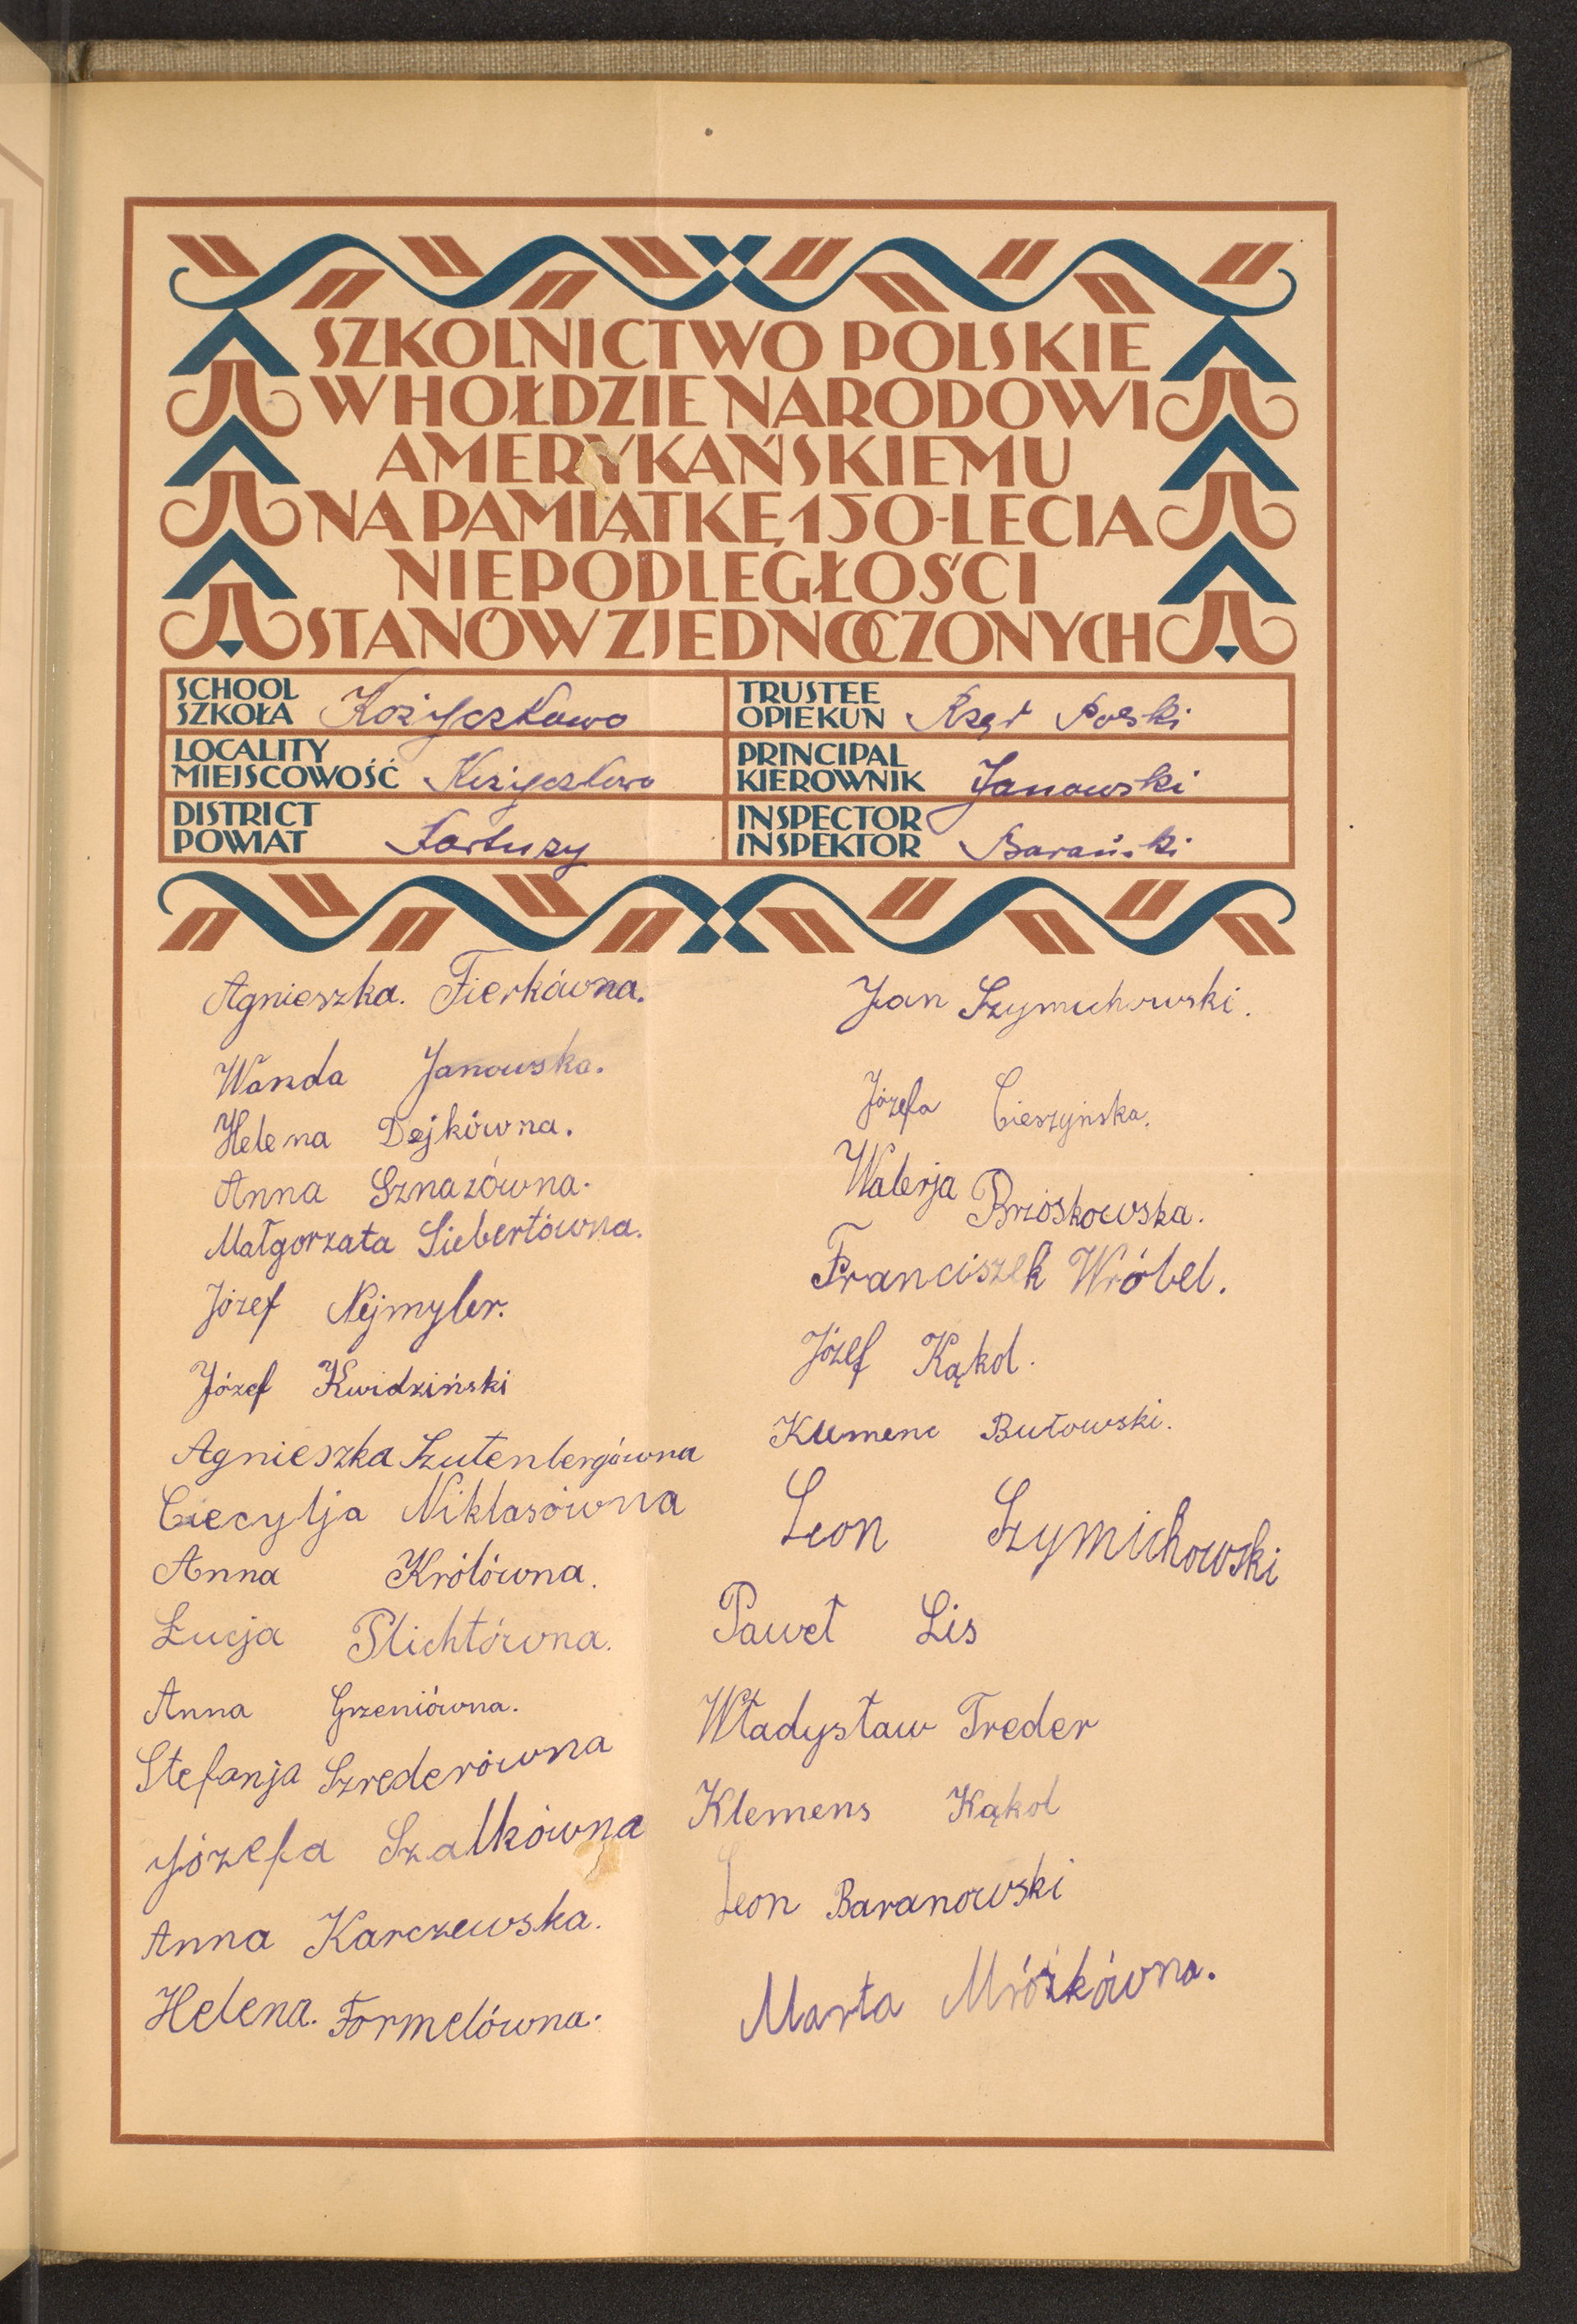 SZKOLNICTWO POLSKIE
W HOŁDZIE NARODOWI
AMERYKAŃSKIEMU
NA PAMIĄTKĘ 150-LECIA
NIEPODLEGŁOŚCI
STANÓW ZJEDNOCZONYCH
SCHOOL
SZKOŁA Kożyczkowo
LOCALITY
MIEJSCOWOŚĆ Kożyczkowo
DISTRICT
POWIAT Kartuzy
TRUSTEE
OPIEKUN Rząd Polski
PRINCIPAL
KIEROWNIK Janowski
INSPECTOR
INSPEKTOR Barański
Agnieszka. Fierkówna.
Wanda Janowska.
Helena Dejkówna.
Anna Sznazówna.
Małgorzata Siebertówna.
Józef Nejmyler.
Józef Kwidziński
Agnieszka Szutenbergówna
Ciecylja Niklasówna
Anna Królówna.
Łucja Plichtówna.
Anna Grzeniówna.
Stefanja Szrederówna
Józefa Szalkówna
Anna Karczewska.
Helena. Formelówna.
Jan Szymichowski.
Józefa Cieszyńska.
Walerja Brzoskowska.
Franciszek Wróbel.
Józef Kąkol.
Klemenc Butowski.
Leon Szymichowski
Paweł Lis
Władysław Treder
Klemens Kąkol
Leon Baranowski
Marta Mrózkówna.